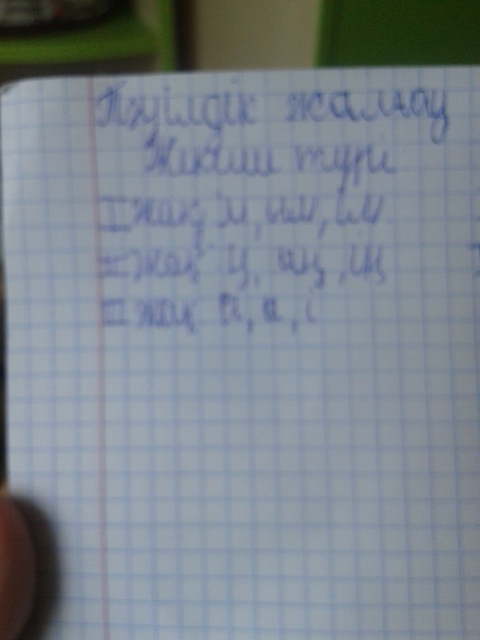 Тәуілдік жалғау
Жекеше түрі
I жақ м, ым, ім
II жақ ң, ың, ің
III жақ ы, і